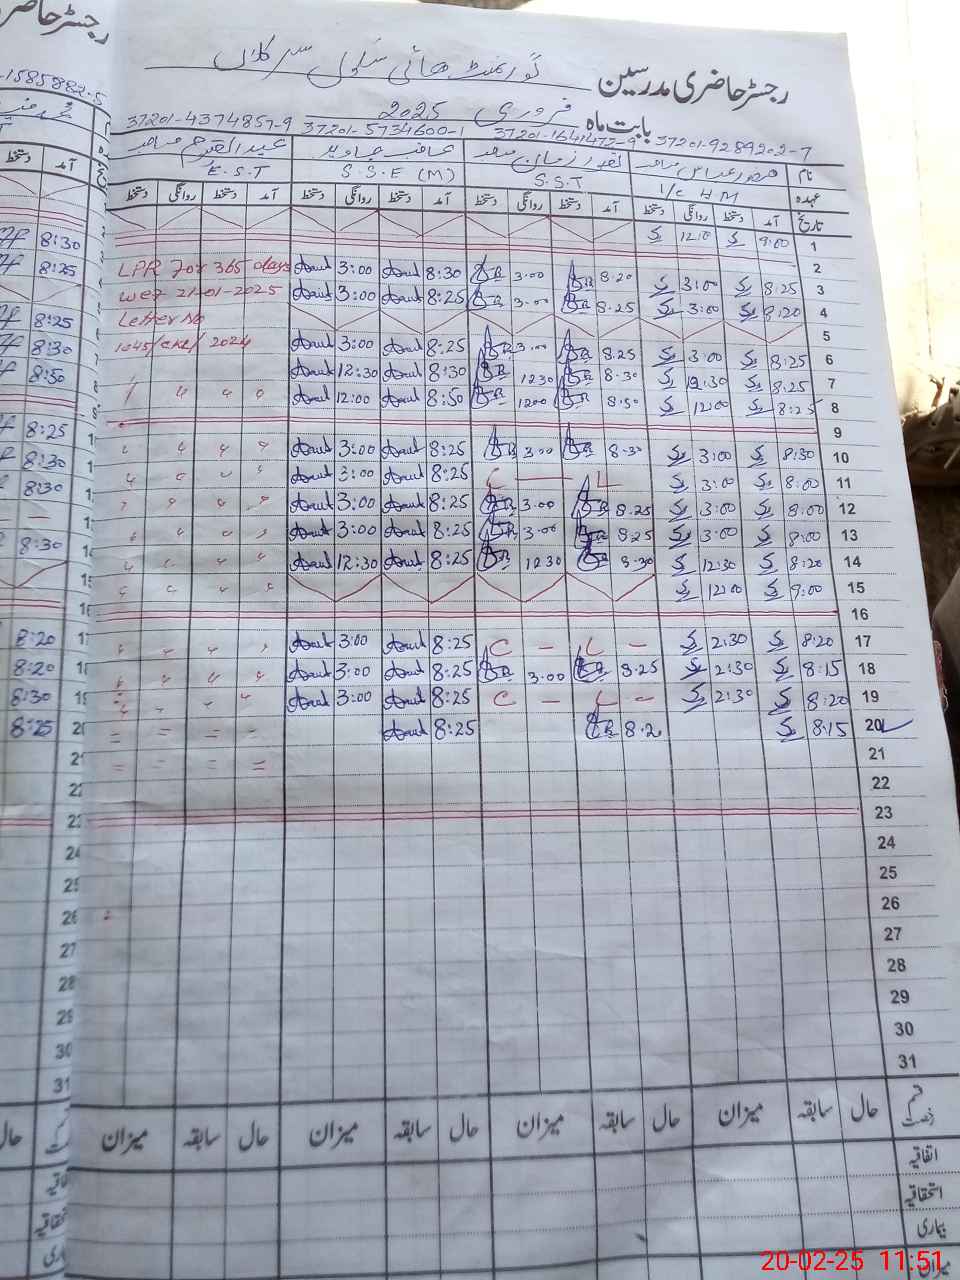 رجسٹر حاضری مدرسین
گورنمنٹ ہائی سکول سر کلاں
بابت ماہ فروری 2025
37201-9289202-7 37201-1641472-9 37201-5734600-1 37201-4374857-9
نام
عہدہ I/C HM S.S.T S.S.E (M) E.S.T
تاریخ آمد دستخط روانگی دستخط آمد دستخط روانگی دستخط آمد دستخط روانگی دستخط آمد دستخط روانگی دستخط
1 9:00 12:00
2
3 8:25 3:00 8:20 3:00 8:30 3:00 LPR For 365 days
4 8:20 3:00 8:25 3:00 8:25 3:00 wef 21-01-2025
5 Letter No
6 8:25 3:00 8:25 3:00 8:25 3:00 1045/ 2024
7 8:25 12:30 8:30 1230 8:30 12:30
8 8:25 12:00 8:50 1200 8:50 12:00
9
10 8:30 3:00 8:30 3:00 8:25 3:00
11 8:00 3:00 C — L 8:25 3:00
12 8:00 3:00 8:25 3:00 8:25 3:00
13 8:00 3:00 8:25 3:00 8:25 3:00
14 8:20 12:30 8:30 1230 8:25 12:30
15 9:00 12:00
16
17 8:20 2:30 C — L — 8:25 3:00
18 8:15 2:30 8:25 3:00 8:25 3:00
19 8:20 2:30 C — L — 8:25 3:00
20 8:15 8:2 8:25
21
22
23
24
25
26
27
28
29
30
31
قسم رخصت حال سابقہ میزان حال سابقہ میزان حال سابقہ میزان حال سابقہ میزان
اتفاقیہ
استحقاقیہ
بیماری
میزان
1585882-5
دستخط آمد
8:30
8:25
8:25
8:30
8:50
8:25
8:30
8:30
8:30
8:20
8:20
8:30
8:25
20-02-25 11:51